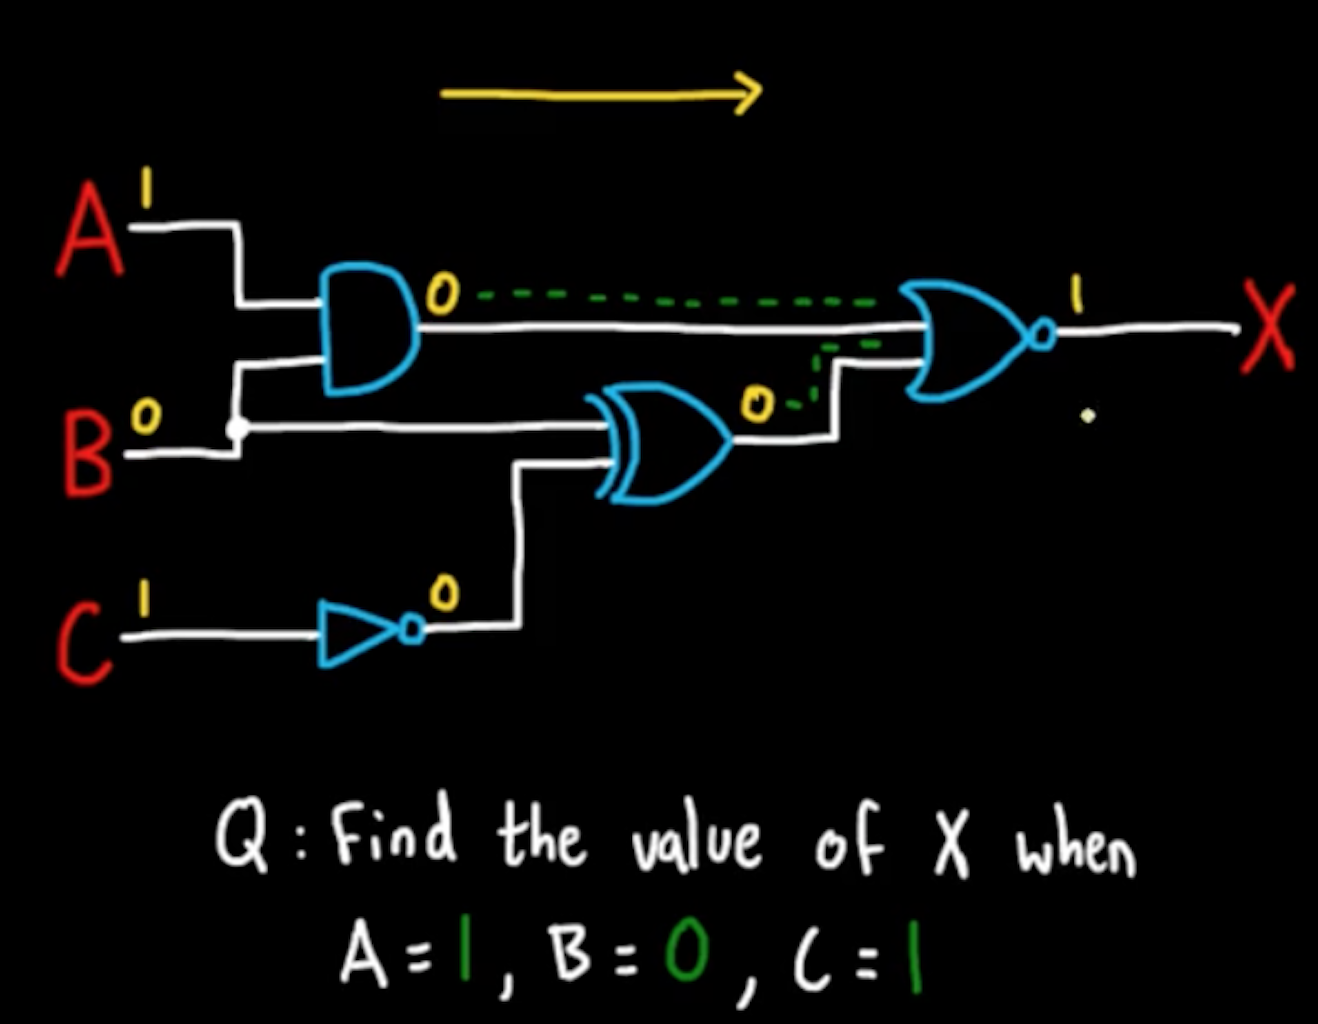 1
A
0
1
X
0
B
0
1
0
C
Q: Find the value of X when
A = 1, B = 0, C = 1